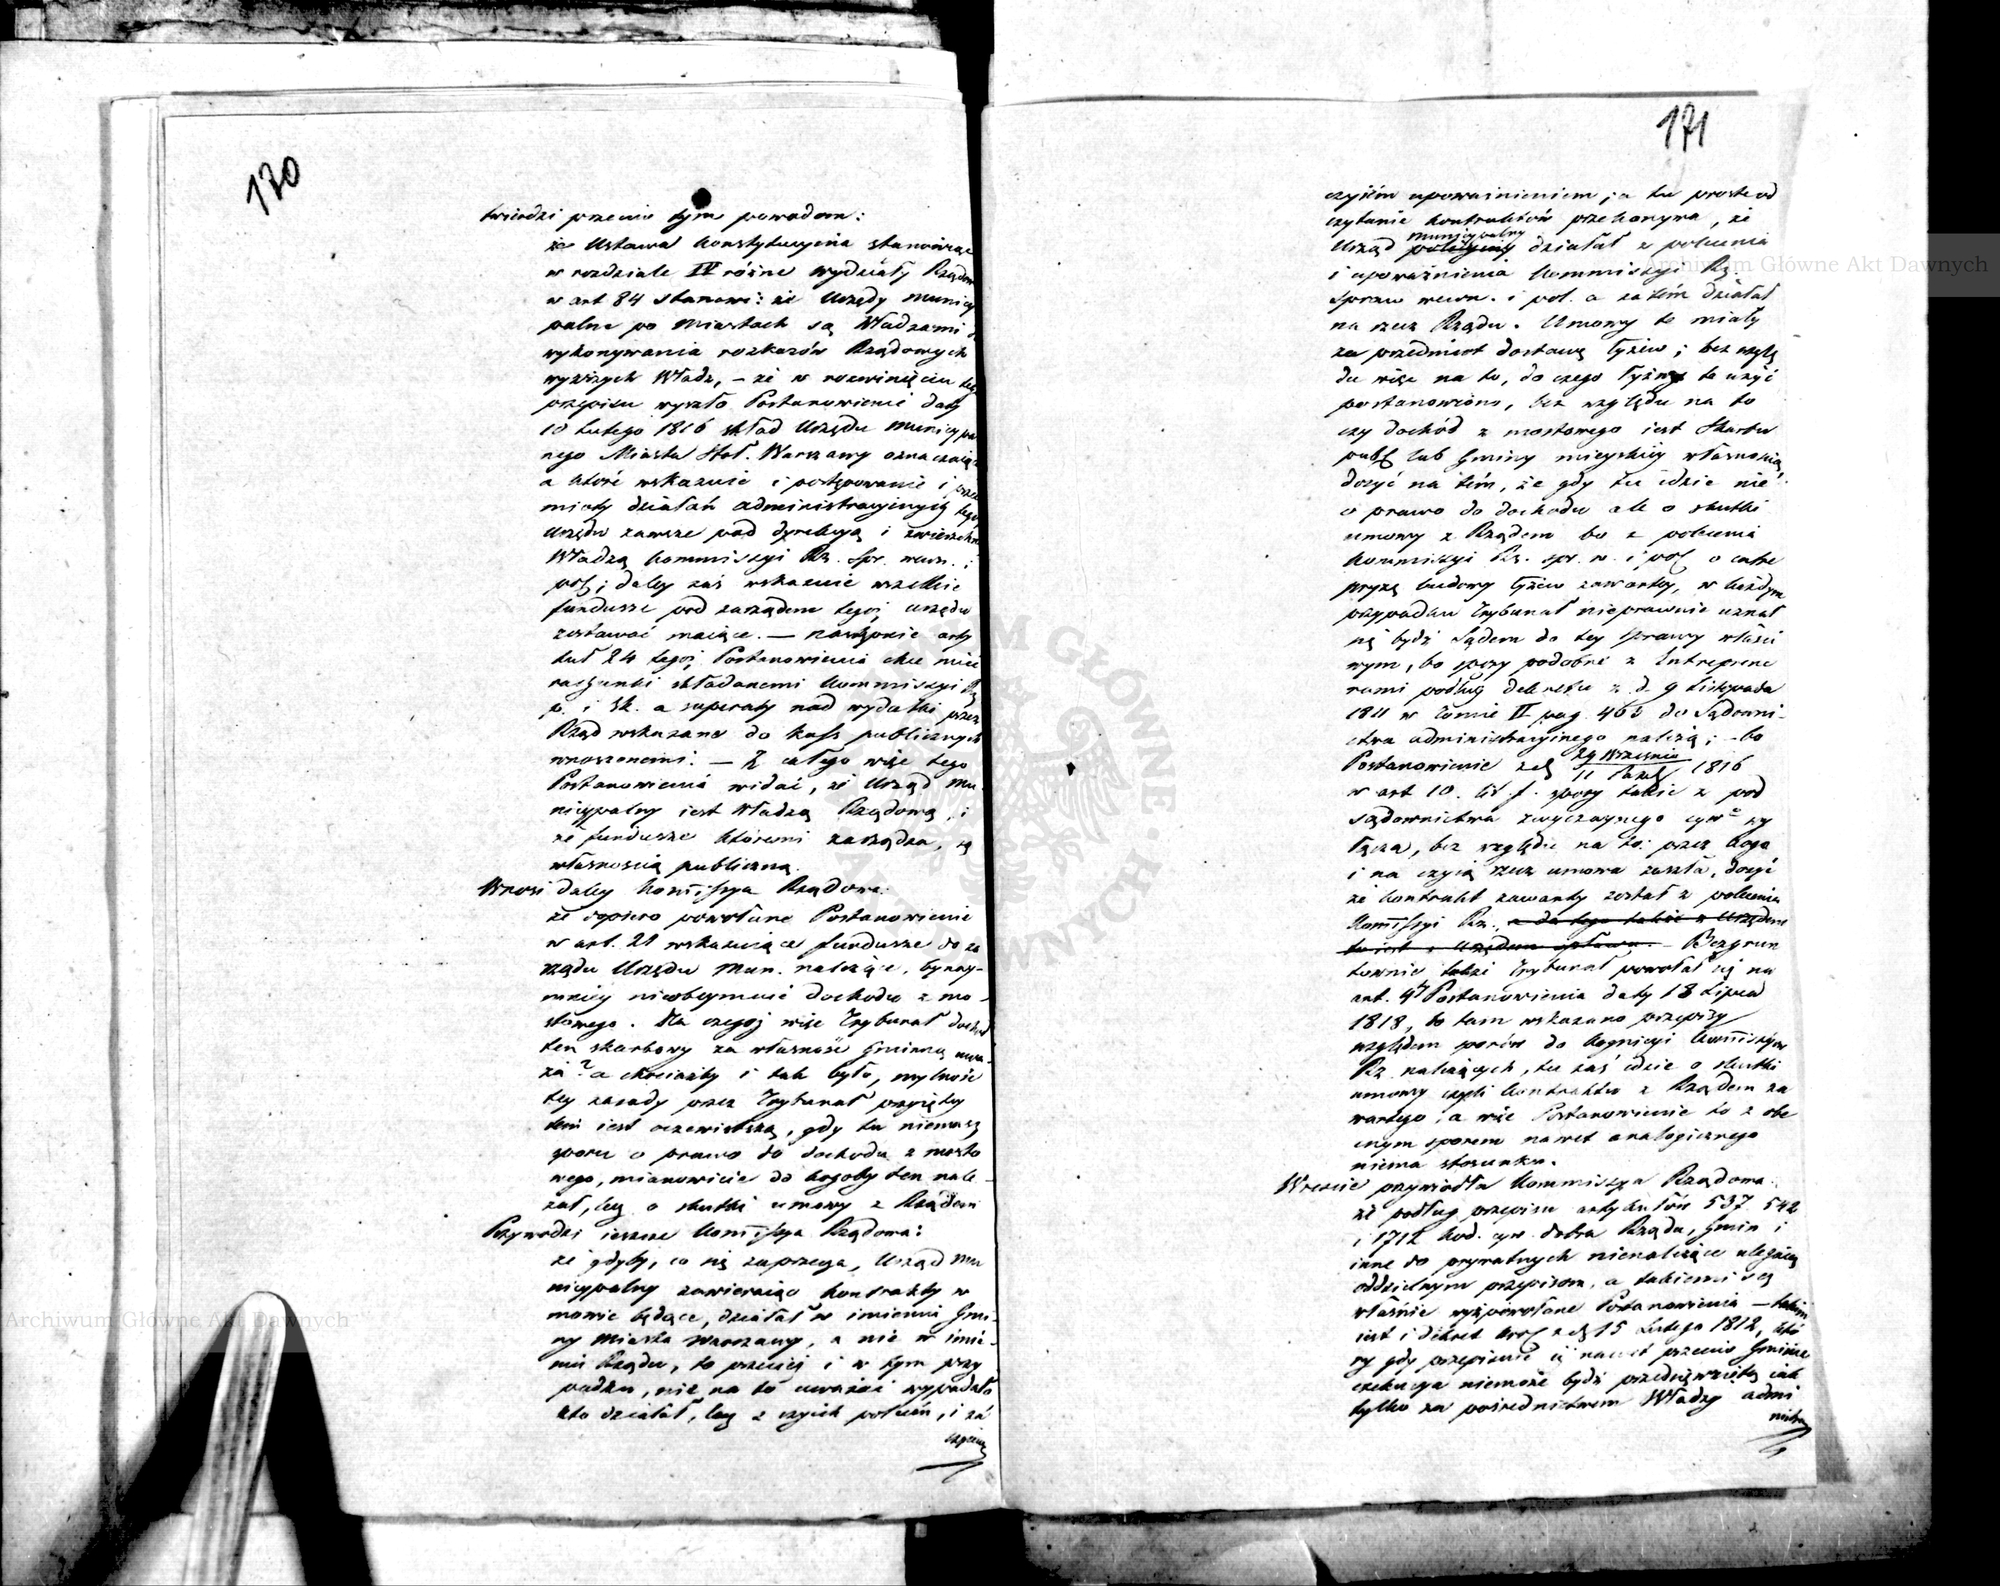 170
twierdzi przeciw tym powodom:
że Ustawa konstytucyina stanowiąc
w rozdziale IV różne wydziały Rządow
w art 84 stanowi: że Urzędy munici
palne po Miastach są Władzami d
wykonywania rozkazów Rządowych
wyższych Władz, – że w rozwinięciu teg
przepisu wyszło Postanowienie daty
10 Lutego 1816 skład Urzędu municypa
nego Miasta Stoł. Warszawy oznaczaią
a które wskazuie i postępowanie i prze
mioty działań administracyinych tego
Urzędu zawsze pod dyrekcyą i zwierzchn
Władzą Kommissyi Rz. Spr. wewn. i
pol; daley zaś wskazuie wszelkie
fundusze pod zarządem tegoż urzędu
zostawać maiące. – następnie arty
kuł 24 tegoż Postanowienia chce mieć
rachunki składanemi Kommissyi Rz
p. i Sk. a superaty nad wydatki przez
Rząd wskazane do kass publicznych
wnoszonemi. – Z całego więc tego
Postanowienia widać, że Urząd Mu
nicypalny iest Władzą Rządową, i
że fundusze któremi zarządza, są
własnością publiczną.
Wnosi daley Kommissya Rządowa:
że dopiero powołane Postanowienie
w art. 21 wskazuiące fundusze do za
rządu Urzędu Mun. należące, bynay-
mniey nieobeymuie dochodu z mo-
stowego. Dla czegoż więc Trybunał dochod
ten skarbowy za własność Gminną uwa-
ża? a chociażby i tak było, mylność
tey zasady przez Trybunał przyiętey
iest oczewistszą, gdy tu niemasz
sporu o prawo do dochodu z mosto
wego, mianowicie do kogoby ten nale-
żał, lecz o skutki umowy z Rządem
Przywodzi ieszcze Kommissya Rządowa:
że gdyby, co się zaprzecza, Urząd Mu
nicypalny zawieraiąc kontrakty w
mowie będące, działał w imieniu Gmi-
ny Miasta Warszawy, a nie w imie-
niu Rządu, to przecięż i w tym przy
padku, nie na to uważać wypadało
kto działał, lecz z czyich poleceń, i za
czyiem
171
czyiém upoważnieniem; a tu proste od
czytanie kontraktów przekonywa, że
municypalny
Urząd policyiny działał z polecenia
i upoważnienia Kommissyi Rz.
Spraw wewn. i pol. a zatém działał
na rzecz Rządu. Umowy te miały
za przedmiot dostawę łyżew; bez wzglę
du więc na to, do czego łyżwy te użyć
postanowiono, bez względu na to
czy dochód z mostowego iest Skarbu
publ lub Gminy mieyskiey własnością,
dosyć na tém, że gdy tu idzie nie
o prawo do dochodu ale o skutki
umowy z Rządem bo z polecenia
Kommissyi Rz. spr. w. i pol o entre
pryzę budowy łyżew zawartey, w każdym
przypadku Trybunał nieprawnie uznał
się bydź Sądem do tey sprawy właści
wym, bo spory podobne z Entreprene
rami podług dekretu z d. 9 Listopada
1811 w Tomie II pag. 463 do Sądowni-
ctwa administracyinego należą; – bo
29 Września
Postanowienie z d 11 Paźdz 1816
w art 10. lit. f. spory takie z pod
Sądownictwa zwyczaynego cywo wy
łącza, bez względu na to: przez kogo
i na czyią rzecz umowa zaszła, dosyć
że kontrakt zawarty został z polecenia
Kommissyi Rz. a do tego także z Urzędem
to iest z Urzędem – Bezgrun
townie także Trybunał powołał się na
art. 4ty Postanowienia daty 18 Lipca
1818, bo tam wskazano przepisy
względem sporów do kognicyi Kommissyów
Rz należących, tu zaś idzie o skutki
umowy czyli kontraktu z Rządem za
wartego; a więc Postanowienie to z obe
cnym sporem nawet analogicznego
niema stosunku.
Wreszcie przywiodła Kommissya Rządowa:
że podług przepisu artykułów 537. 542
i 1712 kod. cyw. dobra Rządu, Gmin i
inne do prywatnych nienależące ulegaią
oddzielnym przepisom, a takiemi są
właśnie wyżpowołane Postanowienia – takim
iest i dekret Król z d 15 Lutego 1812, któ
ry gdy przepisuie iż nawet przeciw Gminie
exekucya niemoże bydź przedsięwziętą iak
tylko za pośrednictwem Władzy admi
nistra